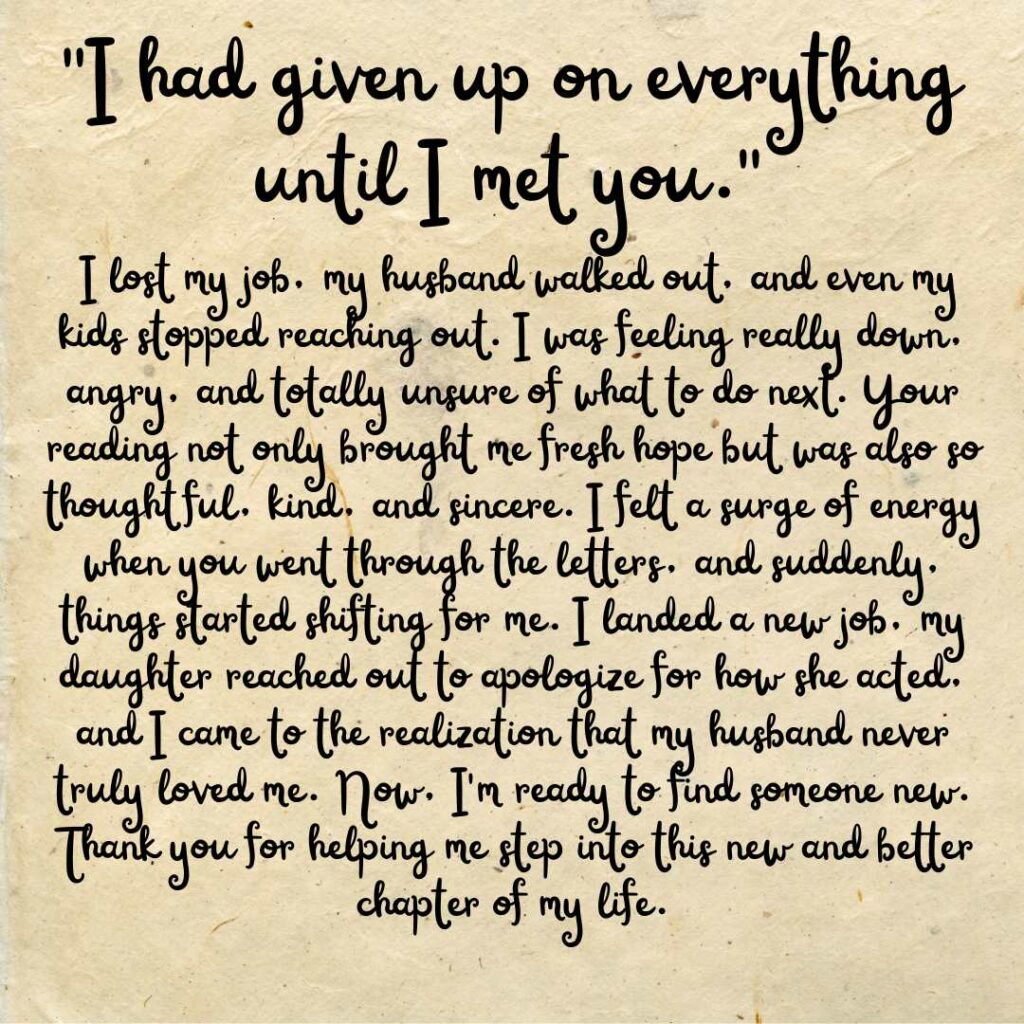 "I had given up on everything
until I met you."
I lost my job, my husband walked out, and even my
kids stopped reaching out. I was feeling really down,
angry, and totally unsure of what to do next. Your
reading not only brought me fresh hope but was also so
thoughtful, kind, and sincere. I felt a surge of energy
when you went through the letters, and suddenly,
things started shifting for me. I landed a new job, my
daughter reached out to apologize for how she acted,
and I came to the realization that my husband never
truly loved me. Now, I'm ready to find someone new.
Thank you for helping me step into this new and better
chapter of my life.